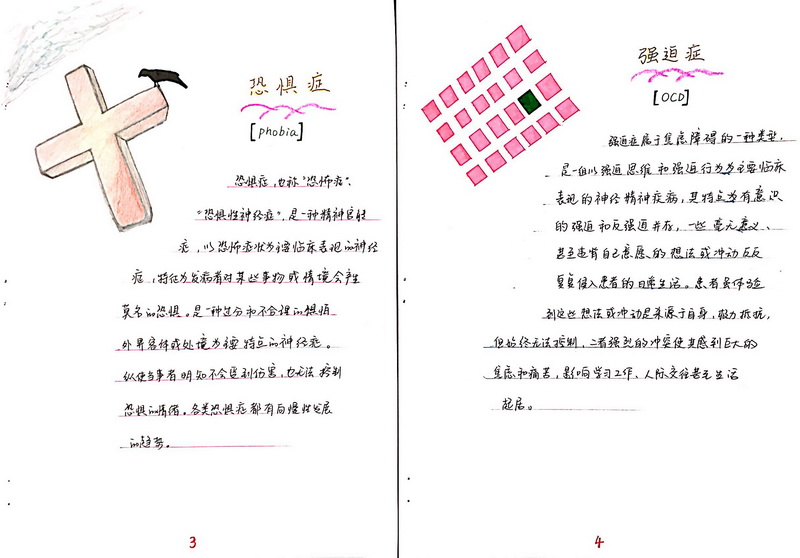 恐惧症
[phobia]
恐惧症,也称"恐怖症"、
"恐惧性神经症",是一种精神官能
症,以恐怖症状为主要临床表现的神经
症,特征为发病者对某些事物或情境会产生
莫名的恐惧。是一种过分和不合理的惧怕
外界客体或处境为主要特点的神经症。
纵使当事者明知不会受到伤害,也无法控制
恐惧的情绪。各类恐惧症都有向慢性发展
的趋势。
3
强迫症
[OCD]
强迫症属于焦虑障碍的一种类型,
是一组以强迫思维和强迫行为为主要临床
表现的神经精神疾病,其特点为有意识
的强迫和反强迫并存,一些毫无意义、
甚至违背自己意愿的想法或冲动反反
复复侵入患者的日常生活。患者虽体验
到这些想法或冲动是来源于自身,极力抵抗,
但始终无法控制,二者强烈的冲突使其感到巨大的
焦虑和痛苦,影响学习工作、人际交往甚至生活
起居。
4